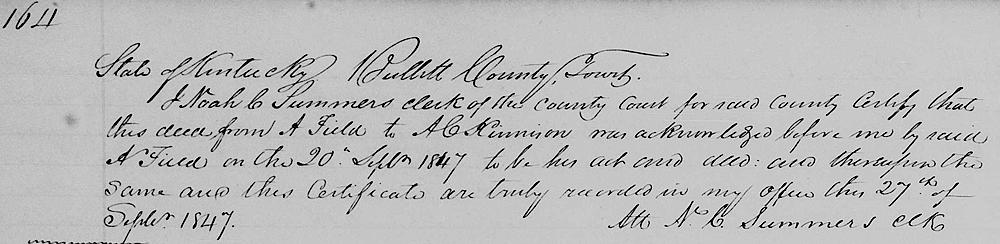 164
State of Kentucky Bullitt County Court.
I Noah C Summers clerk of the county court for said county certify that
this deed from A Field to A C Kinnison was acknowledged before me by said
A Field on the 20th Septr 1847 to be his act and deed: and thereupon the
same and this certificate are truly recorded in my office this 27th of
Septr 1847. Att N. C. Summers clk